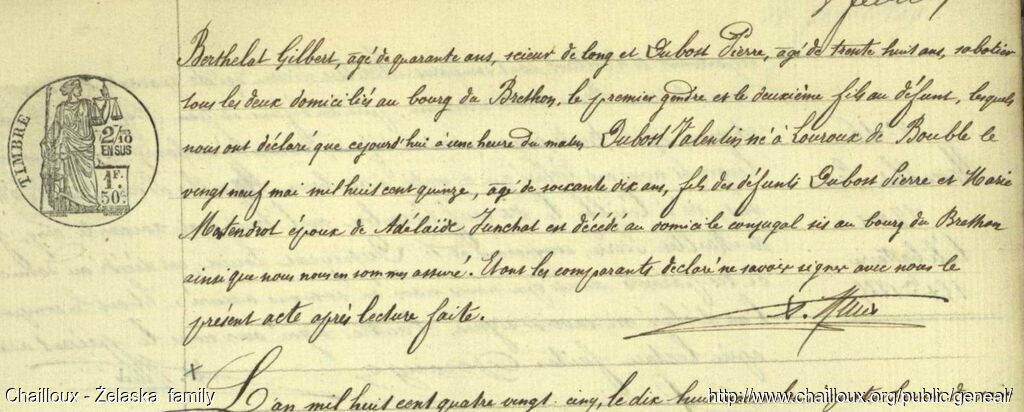 Berthelat Gilbert, agé de quarante ans, scieur de long et Dubost Pierre, agé de trente huit ans, sabotier
tous les deux domiciliés au bourg du Brethon, le premier gendre et le deuxième fils au défunt, lesquels
nous ont déclaré que cejourd'hui à une heure du matin Dubost Valentin né à Louroux de Bouble le
vingt neuf mai mil huit cent quinze, agé de soixante dix ans, fils des défunts Dubost Pierre et Marie
époux de Adélaïde est décédé au domicile conjugal sis au bourg du Brethon
ainsi que nous nous en sommes assuré. Et ont les comparants déclaré ne savoir signer avec nous le
présent acte après lecture faite.
TIMBRE
2/10
EN SUS
1F.
50c.
L'an mil huit cent quatre vingt cinq, le dix
Chailloux - Żelaska family
http://www.chailloux.org/public/geneal/